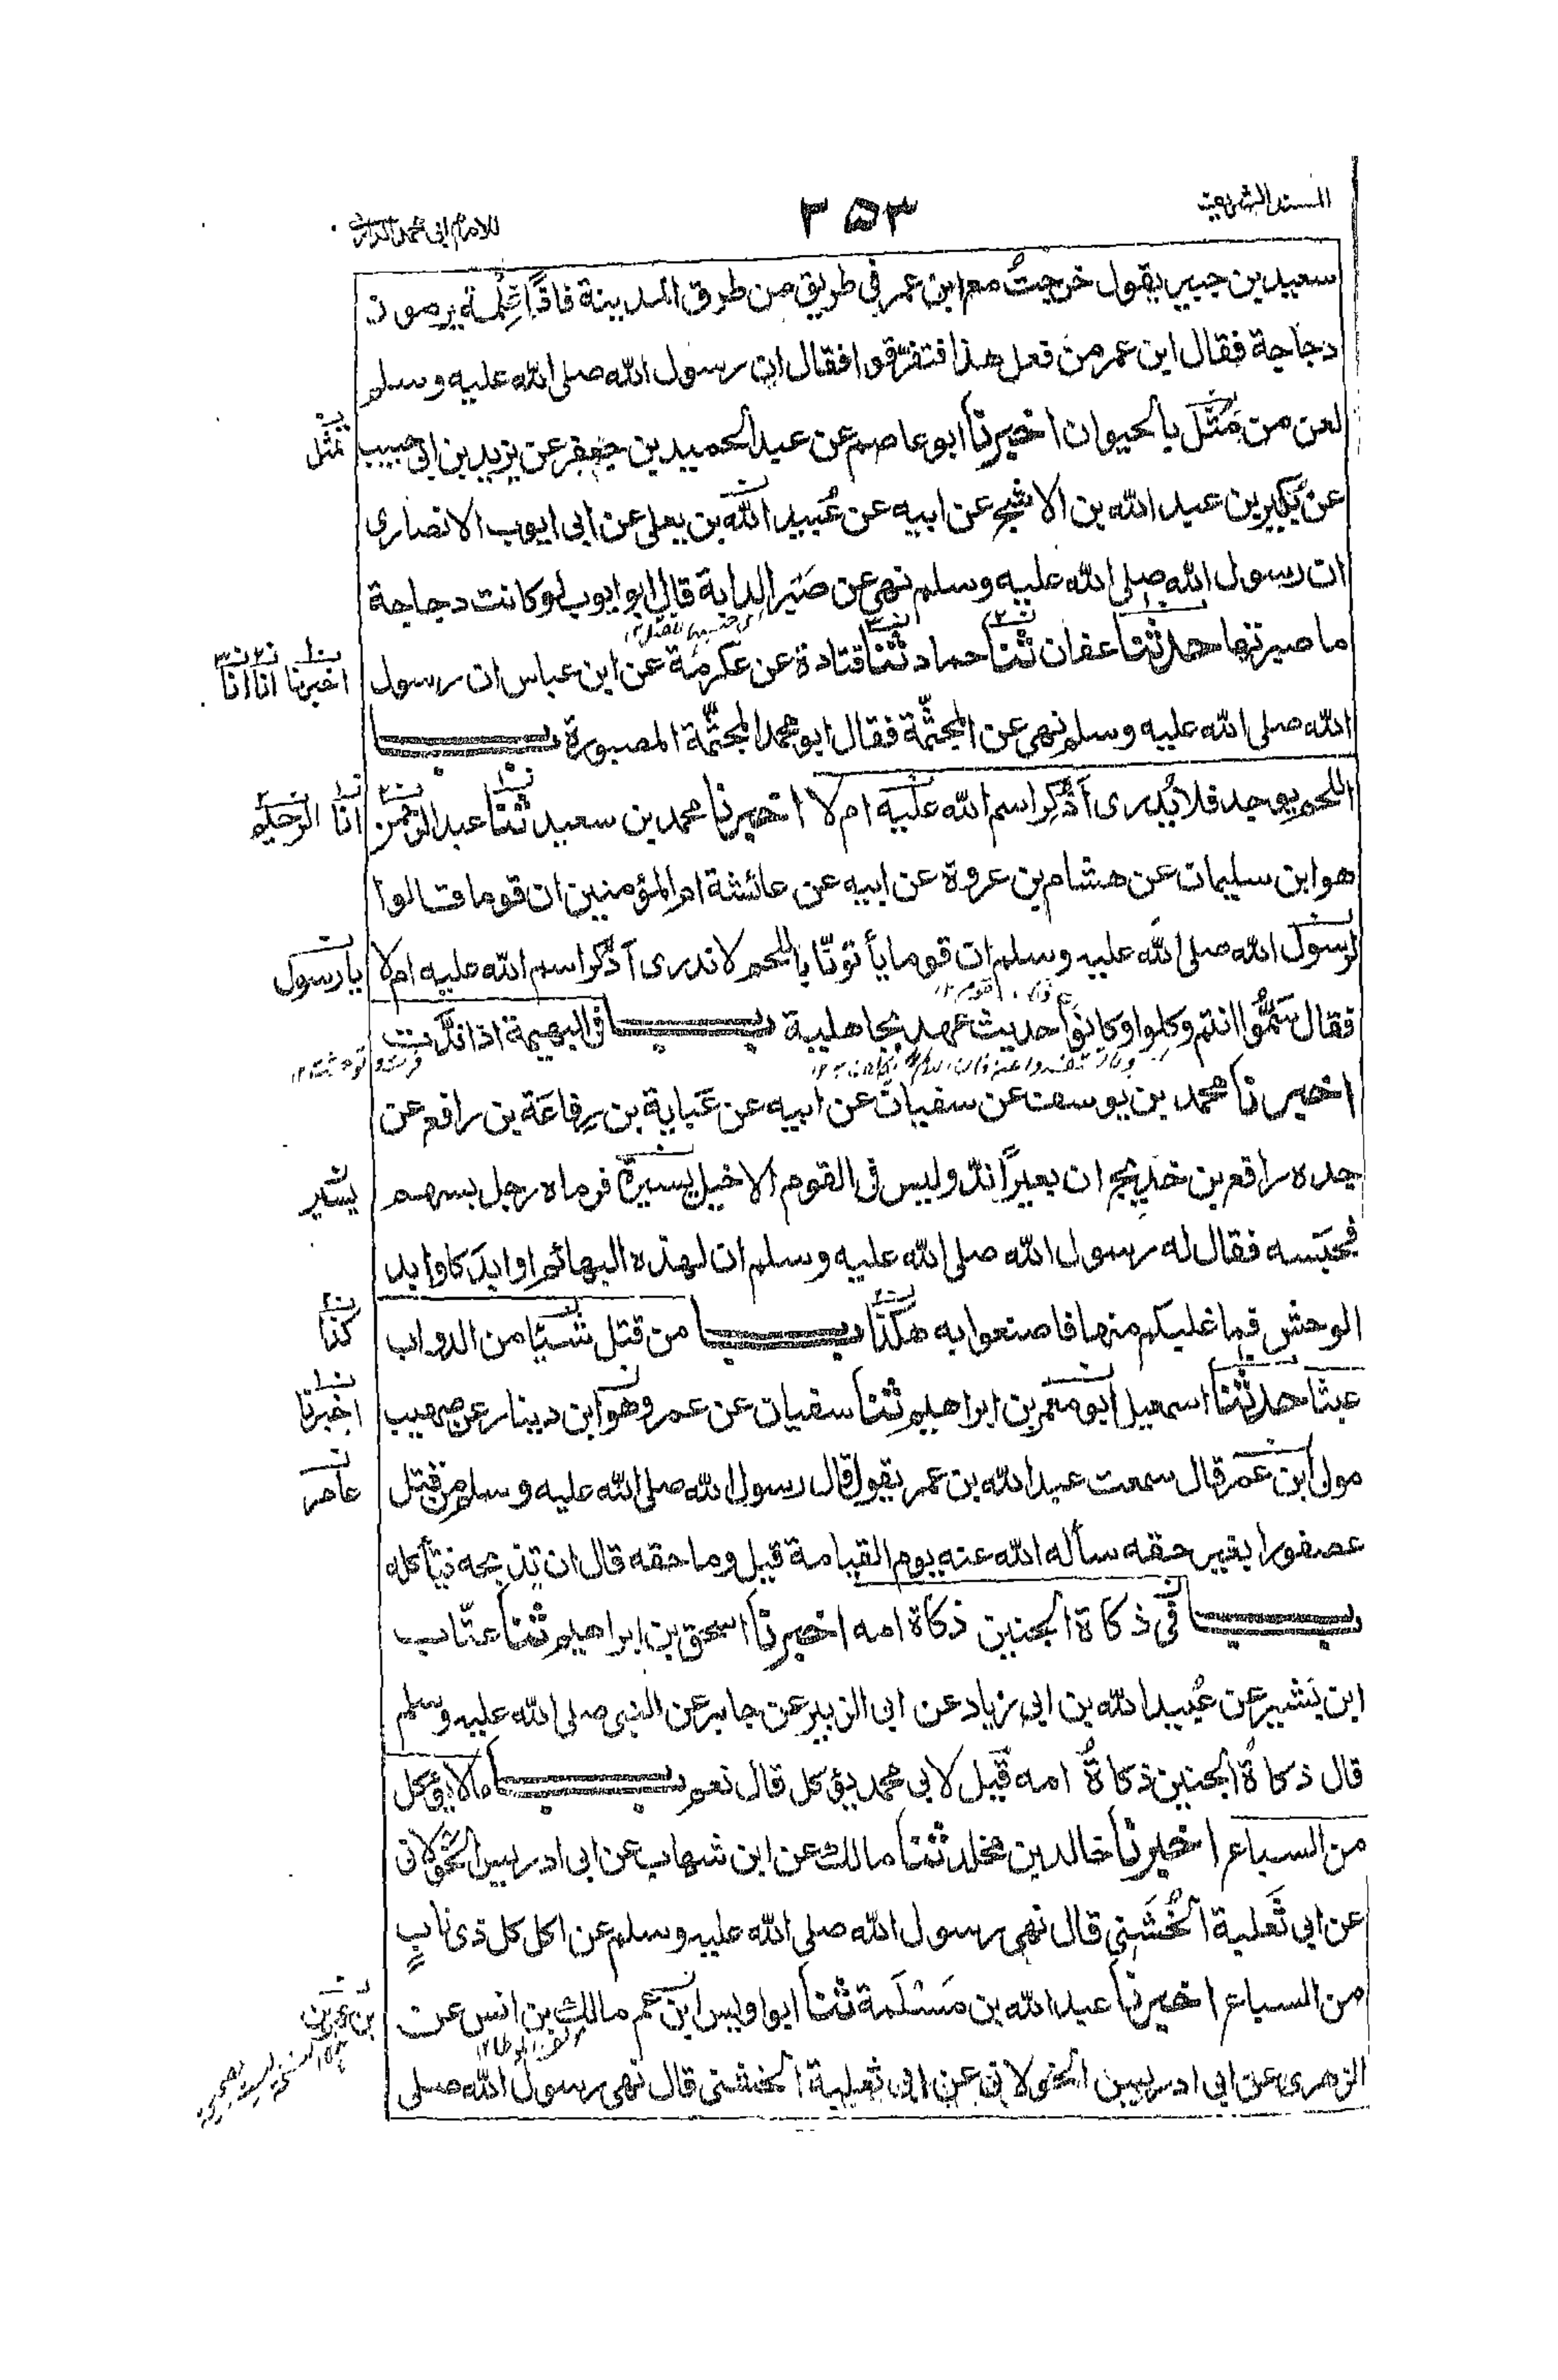 المسند الشريف
٢٥٣
للامام ابی محمد الدارمی
سعيد بن جبير يقول خرجتُ مع ابن عمر فى طريق من طرق المدينة فاذا غِلْمة يرمون
دجاجة فقال ابن عمر من فعل هذا فتفرّقوا فقال ان رسول الله صلى الله عليه وسلم
لعن من مَثَّلَ بالحيوان اخبرنا ابو عاصم عن عبد الحميد بن جعفر عن يزيد بن ابى حبيب
تمثل
عن بُكَير بن عبد الله بن الاشج عن ابيه عن عُبيد الله بن يعلى عن ابى ايوب الانصارى
ان رسول الله صلى الله عليه وسلم نهى عن صَبْر الدابة قال ابو ايوب لو كانت دجاجة
ما صبرتها حدثنا عفان ثنا حماد ثنا قتادة عن عكرمة عن ابن عباس ان رسول
اخبرنا انا انا
الله صلى الله عليه وسلم نهى عن المجثّمة فقال ابو محمد المجثّمة المصبورة باب
اللحم يوجد فلا يُدرى أذُكِر اسم الله عليه ام لا اخبرنا محمد بن سعيد ثنا عبد الرحمن
انا الرحيم
هو ابن سليمان عن هشام بن عروة عن ابيه عن عائشة ام المؤمنين ان قوما قالوا
لرسول الله صلى الله عليه وسلم ان قوما يأتونّا باللحم لا ندرى أذُكر اسم الله عليه ام لا
يا رسول
فقال سَمُّوا انتم وكلوا وكانوا حديث عهد بجاهلية باب فى البهيمة اذا ندّت
اخبرنا محمد بن يوسف عن سفيان عن ابيه عن عَباية بن رِفاعَة بن رافع عن
جده رافع بن خَدِيج ان بعيرًا ندّ وليس فى القوم الا خيل يسيرة فرماه رجل بسهم
يسير
فحَبَسه فقال له رسول الله صلى الله عليه وسلم ان لهذه البهائم اوابدَ كاوابد
الوحش فما غلبكم منها فاصنعوا به هكذا باب من قتل شيئا من الدواب
كذا
عبثا حدثنا اسمعيل ابو معمر بن ابراهيم ثنا سفيان عن عمرو هو ابن دينار عن صهيب
اخبرنا
مولى ابن عمر قال سمعت عبد الله بن عمر يقول قال رسول الله صلى الله عليه وسلم من قتل
عامر
عصفورا بغير حقه سأله الله عنه يوم القيامة قيل وما حقه قال ان تذبحه فتأكله
باب فى ذكاة الجنين ذكاة امه اخبرنا اسحق بن ابراهيم ثنا عتّاب
ابن بَشير عن عُبيد الله بن ابى زياد عن ابى الزبير عن جابر عن النبى صلى الله عليه وسلم
قال ذكاةُ الجنين ذكاةُ امه قيل لابى محمد يؤكل قال نعم باب ما لا يؤكل
من السباع اخبرنا خالد بن مخلد ثنا مالك عن ابن شهاب عن ابى ادريس الخَوْلانى
عن ابى ثَعلبة الخُشَنِي قال نهى رسول الله صلى الله عليه وسلم عن اكل كل ذى نابٍ
من السباع اخبرنا عبد الله بن مَسْلَمة ثنا ابو اويس ابن عم مالك بن انس عن
الزهرى عن ابى ادريس الخولانى عن ابى ثعلبة الخشنى قال نهى رسول الله صلى